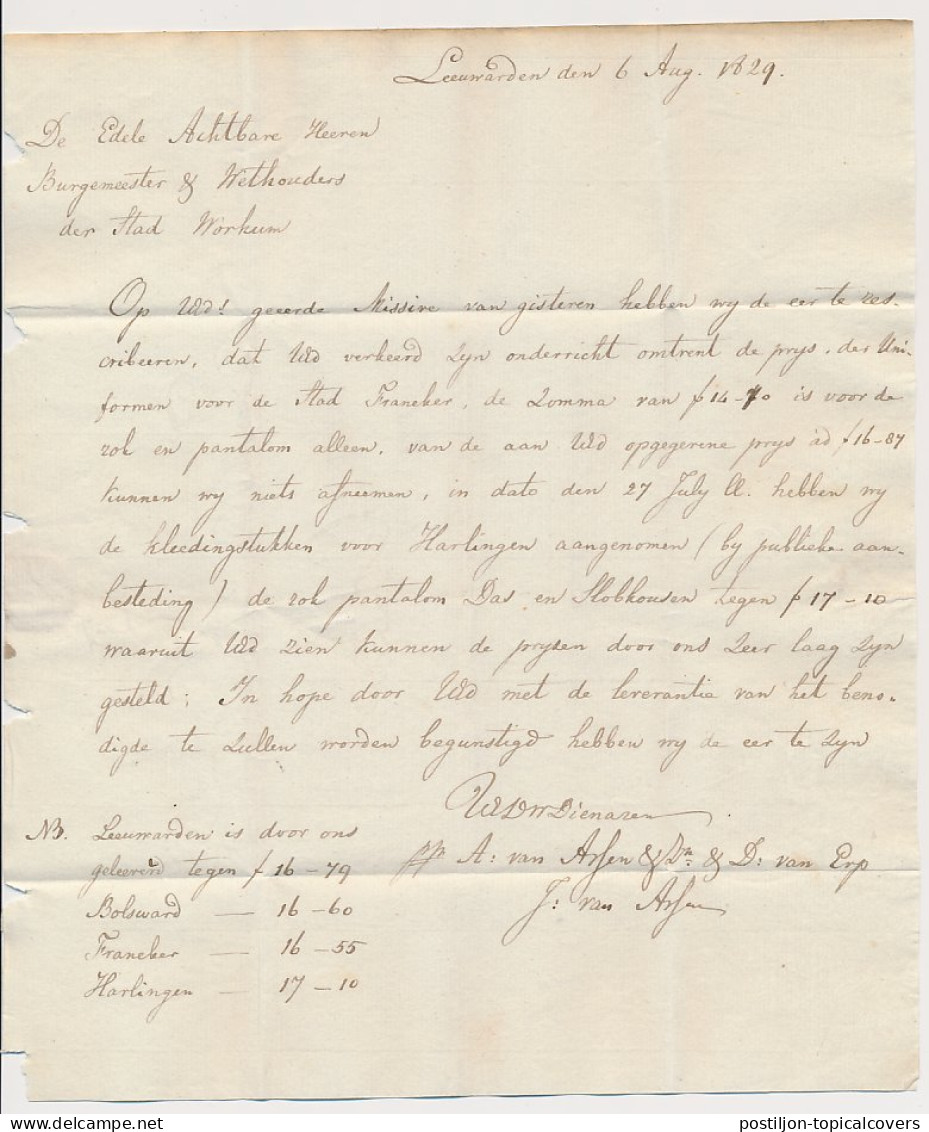 Leeuwarden den 6 Aug. 1829.
De Edele Achtbare Heeren
Burgemeester & Wethouders
der Stad Workum
Op UEd! geeerde Missive van gisteren hebben wy de eer te res-
cribeeren, dat UEd verkeerd zyn onderricht omtrent de prys. der Uni-
formen voor de Stad Franeker, de Zomma van f 14-70 is voor de
rok en pantalom alleen, van de aan UEd opgegevene prys ad f 16-87
kunnen wy niets afneemen, in dato den 27 July ll. hebben wy
de kleedingstukken voor Harlingen aangenomen (by publieke aan-
besteding) de rok pantalom Das en Slobkousen tegen f 17-10
waaruit UEd zien kunnen de prysen door ons zeer laag zyn
gesteld; In hope door UEd met de leverantie van het beno-
digde te zullen worden begunstigd hebben wy de eer te zyn
UEDW Dienaren
NB. Leeuwarden is door ons
geleeverd tegen f 16-79
Bolsward — 16-60
Franeker — 16-55
Harlingen — 17-10
pp A: van Assen & Zn & D: van Erp
J: van Assen
postiljon-topicalcovers